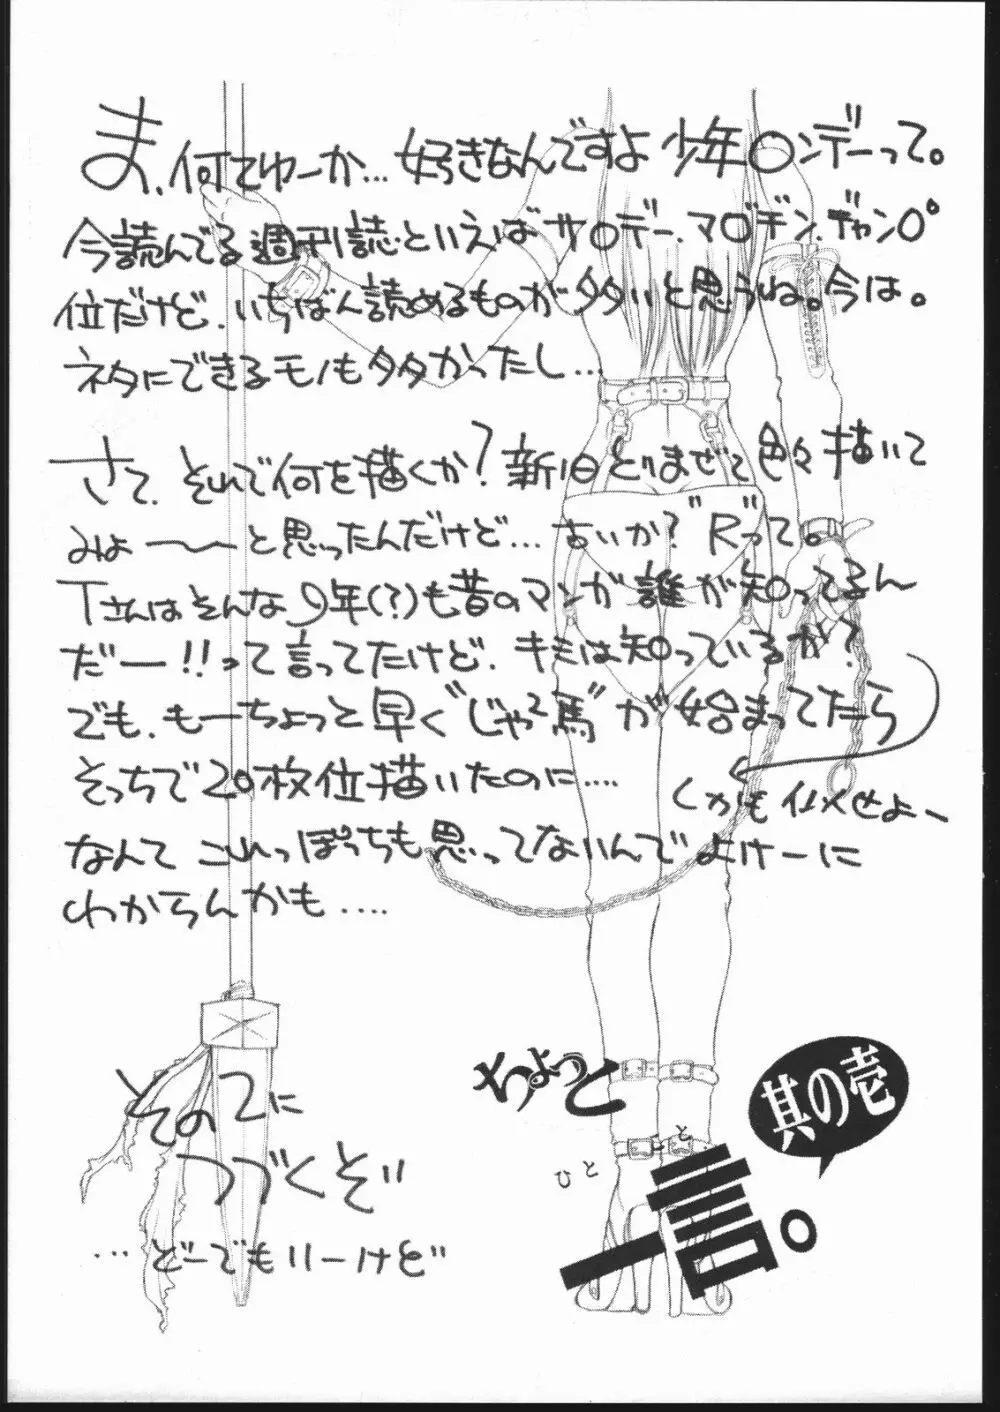 ま、何てゆーか…好きなんですよ 少年〇ンデーって。
今読んでる週刊誌といえばサ〇デー、マ〇ヂン、ヂャン〇゜
位だけど、いちばん読めるものが多いと思うね。今は。
ネタにできるモノも多かったし…
さて、それで何を描くか?新旧とりまぜて色々描いて
みよ〜〜と思ったんだけど…古いか?"R"って。
Tさんはそんな9年(?)も昔のマンガ誰が知ってるん
だー!!って言ってたけど、キミは知っているか?
でも、もーちょっと早く"じゃじゃ馬"が始まってたら
そっちで20枚位描いたのに….
くかも仏メせよー
なんてこれっぽっちも思ってないんでよけーに
わからんかも….
ちょっと
其の壱
ひとこと
一言。
その2に
つづくぞ!!
…どーでもいーけど!!